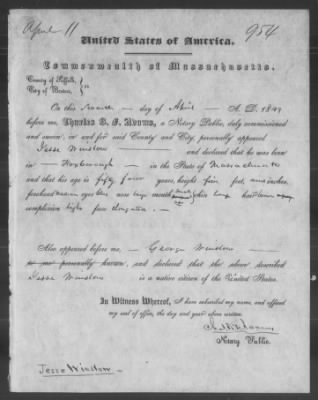 April 11
954
United States of America.
Commonwealth of Massachusetts.
County of Suffolk,
City of Boston, } ss
On this day of April A.D. 1849
before me, Charles B. F. Adams, a Notary Public, duly commissioned
and sworn, in and for said County and City, personally appeared
Jesse Winslow and declared that he was born
in Roxborough in the State of Massachusetts
and that his age is fifty four years, height five feet, nine inches,
forehead medium eyes blue nose large mouth chin long hair brown
complexion light face elongated.
Also appeared before me, George Winslow
to me personally known, and declared that the above described
Jesse Winslow is a native citizen of the United States.
In Witness Whereof, I have subscribed my name, and affixed
my seal of office, the day and year above written.
Notary Public.
Jesse Winslow